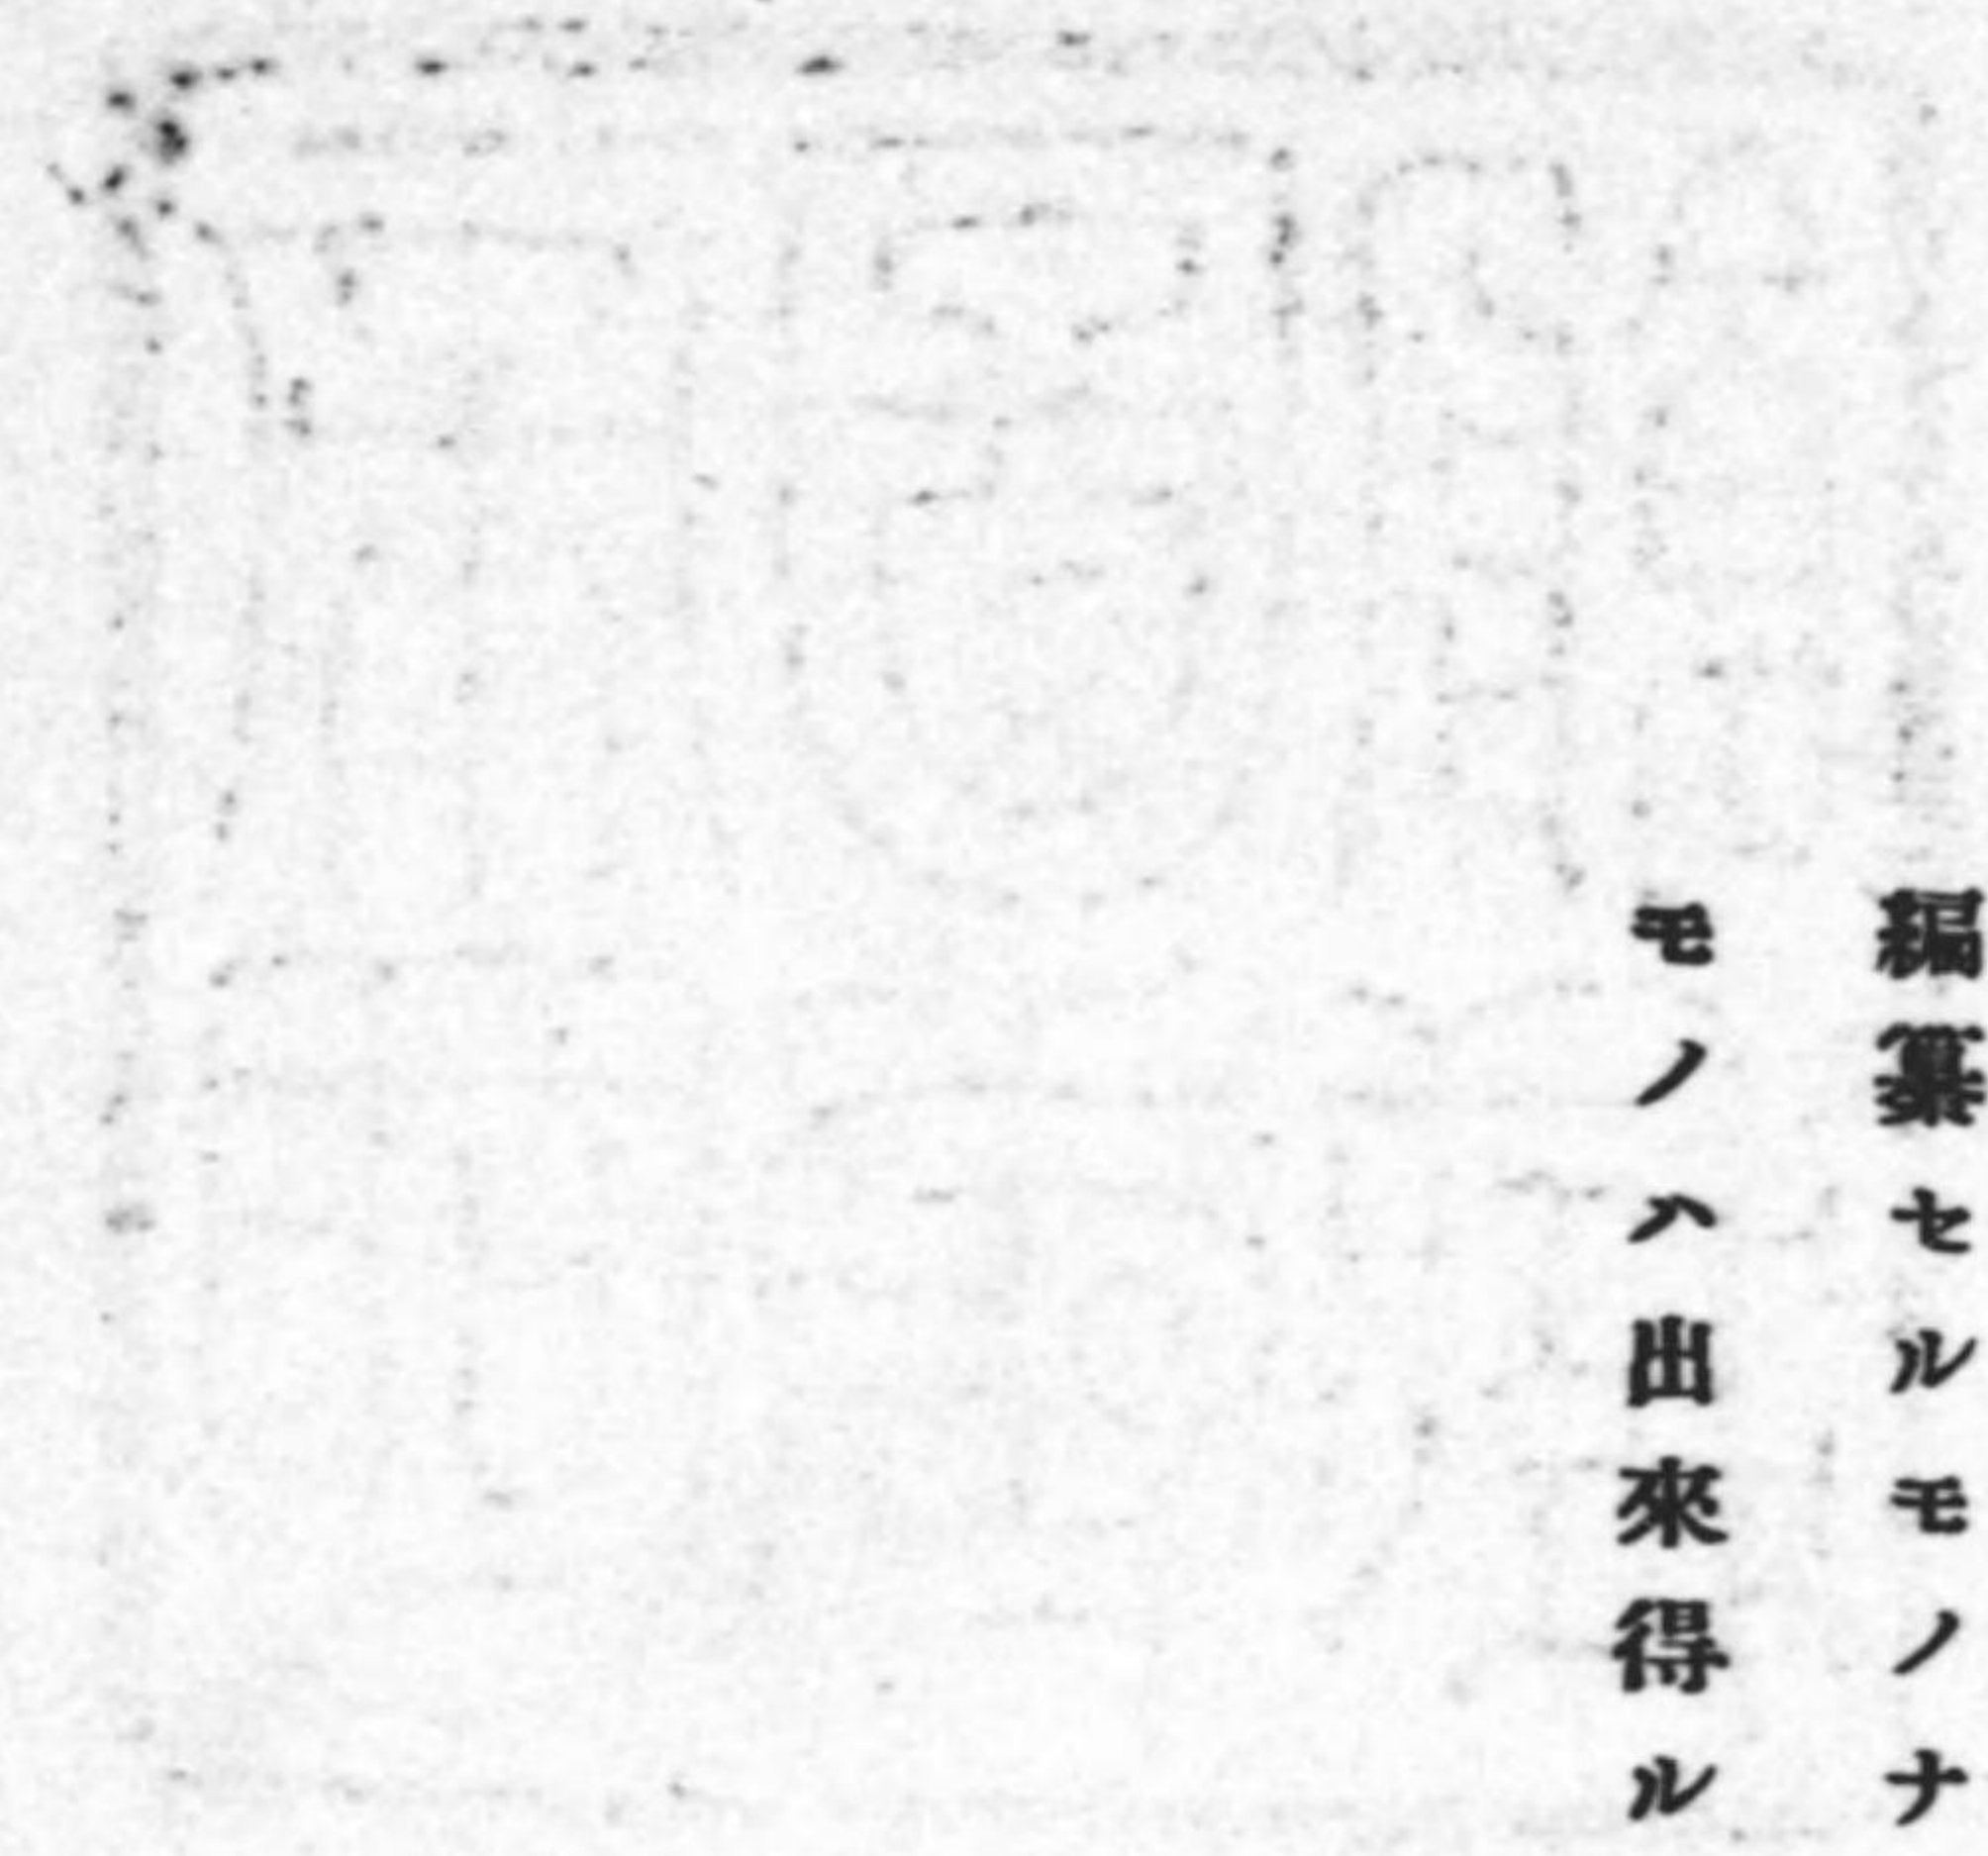 編纂セルモノナ
モノハ出來得ル